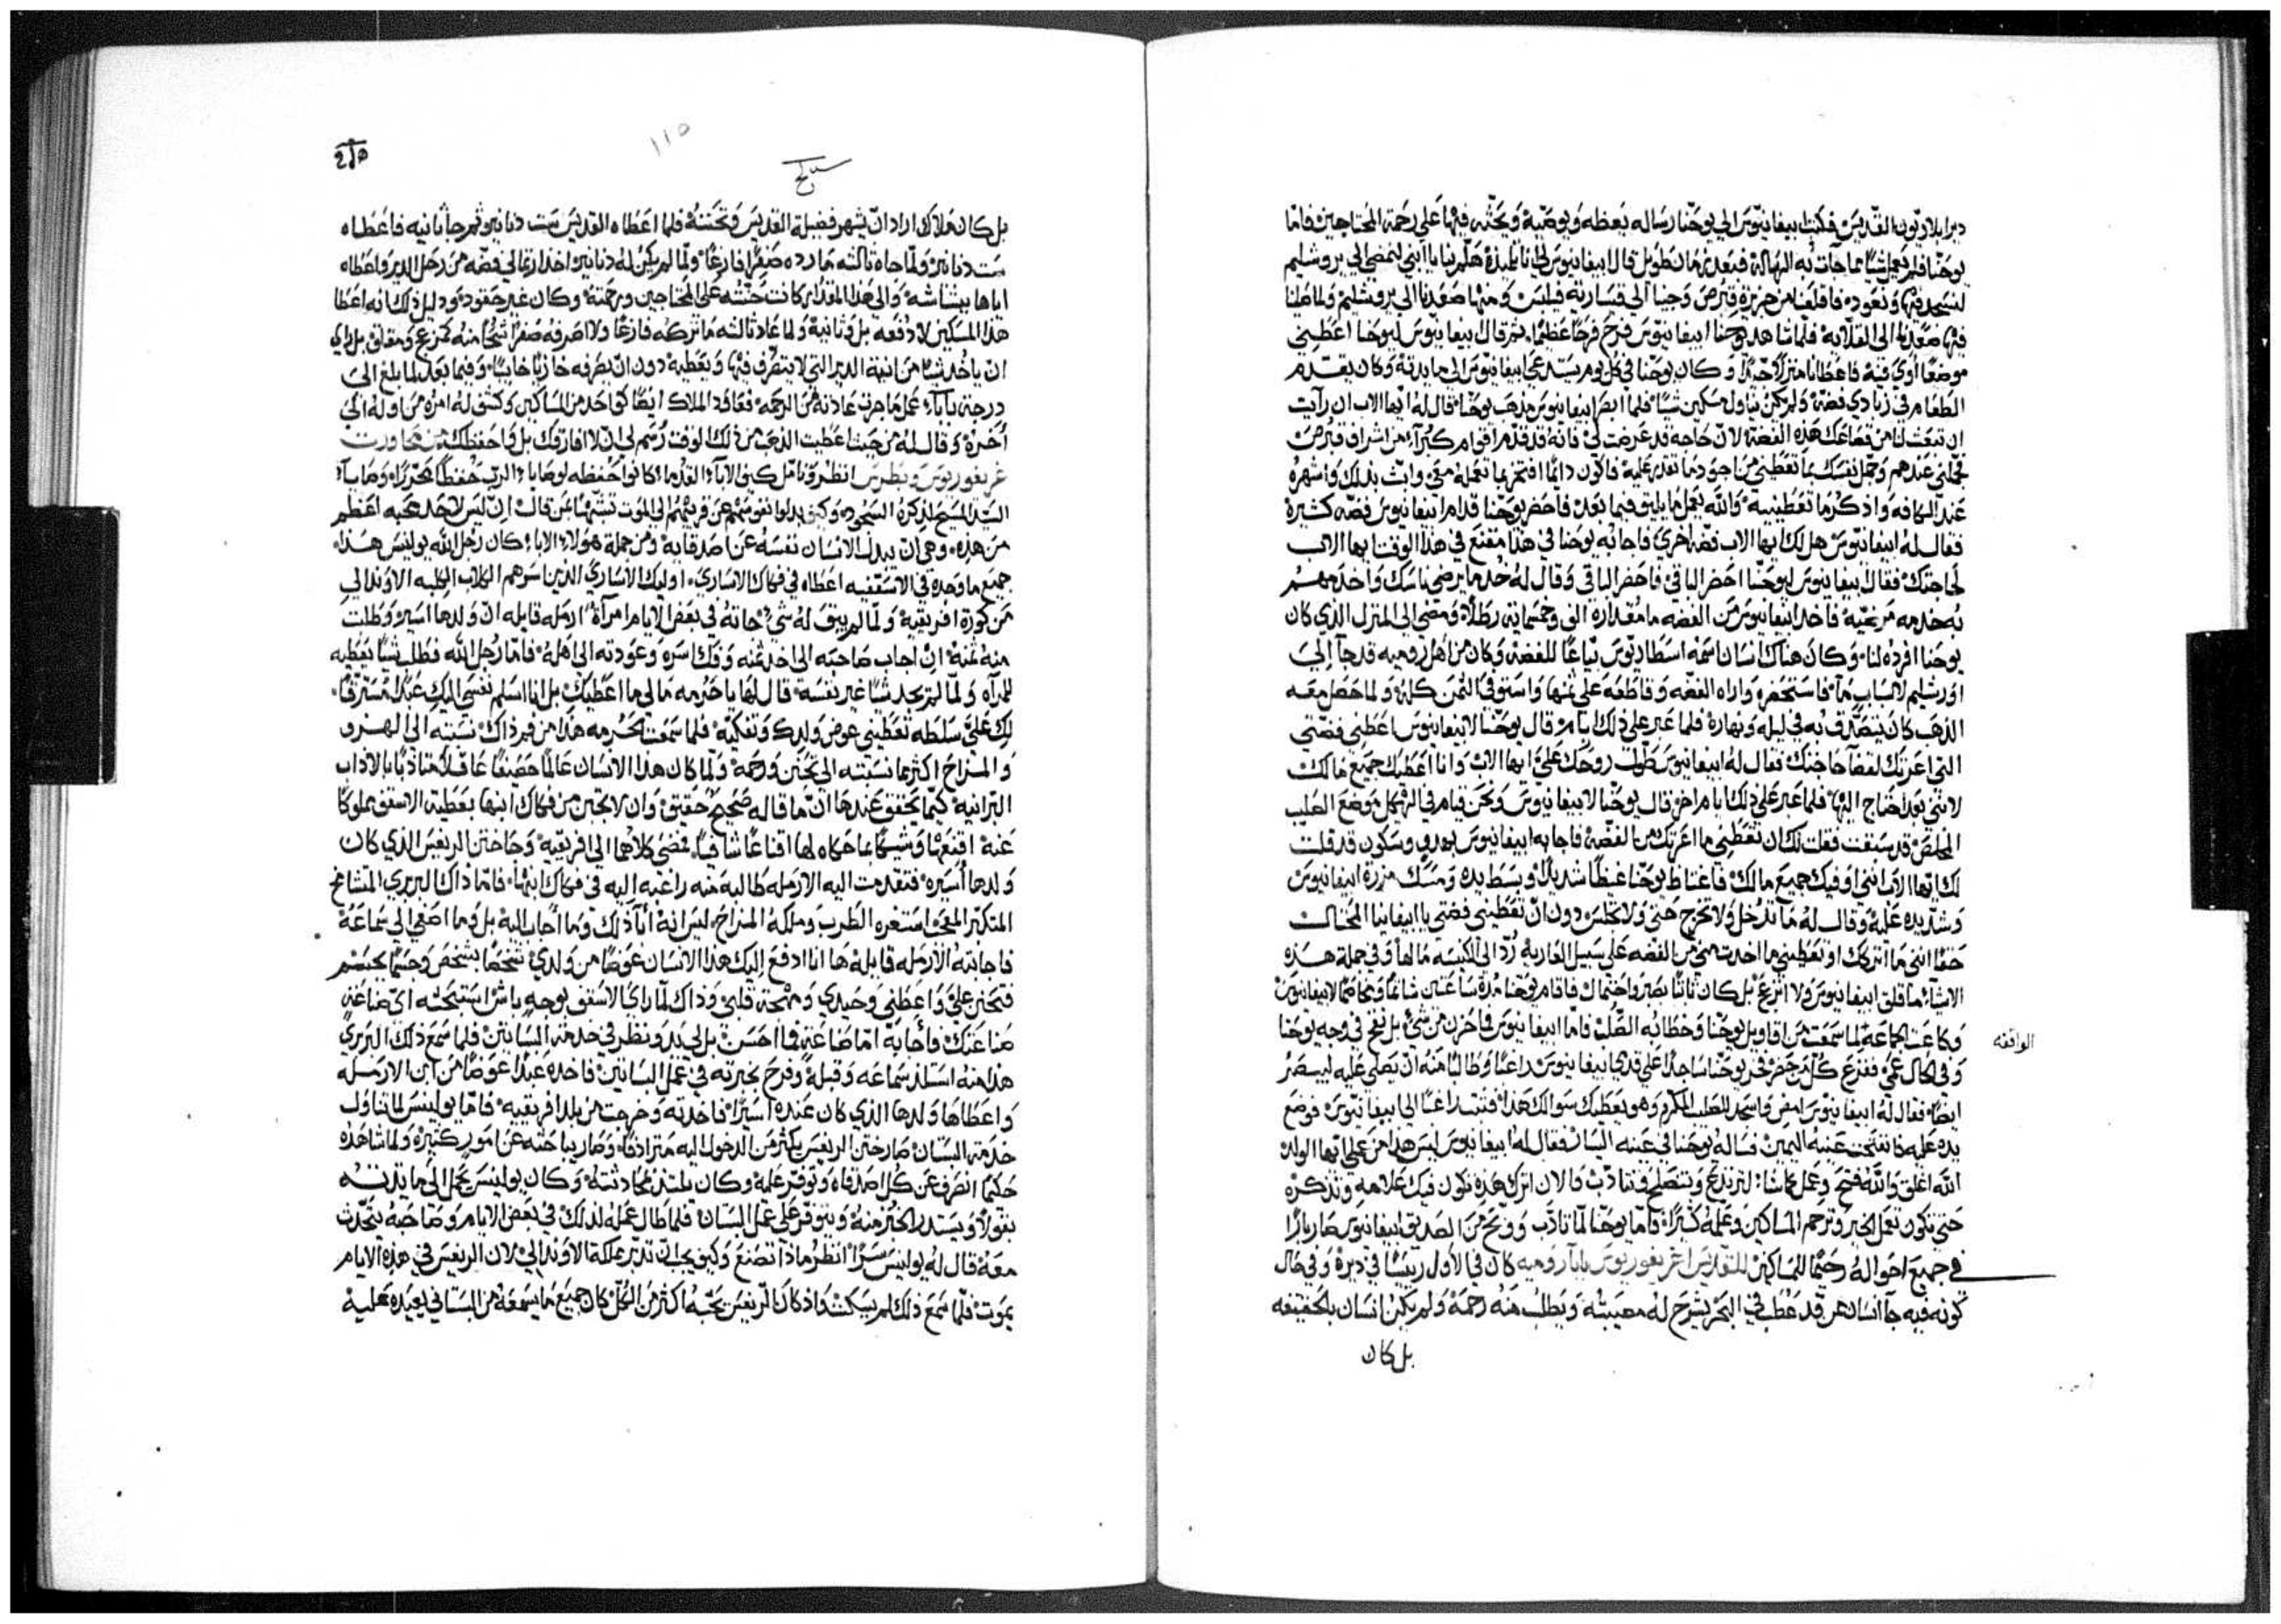 ديرايلادتون القديس فكتب ابيفانيوس الي يوحنا رساله يعظه ويوصيه ويحثه فيها علي رحمة المحتاجين فاما
يوحنا فلم يعمل شيا مما جات به الرساله فبعد زمان طويل قال ابيفانيوس لي انا تلميذه هلم بنا يا ابني لنمضي الي يروشليم
لنسجد فيها ونعود فاقلعنا من جزيرة قبرص وجينا الي قساريه فيلبس ومنها صعدنا الي يروشليم ولما صلينا
فيها صعدنا الي القلايه فلما شاهد يوحنا ابيفانيوس فرح فرحا عظيما ثم قال ابيفانيوس ليوحنا اعطيني
موضعا اوي فيه فاعطانا منزلا جيدا وكان يوحنا في كل يوم يستدعي ابيفانيوس الي مايدته وكان يقدم
الطعام في زبادي فضه ولم يكن يناول مسكين شيا فلما ابصر ابيفانيوس مذهب يوحنا قال له ايها الاب ان رايت
ان تبعث لنا من قصاعك هذه الفضه لان حاجه قد عرضت لي فانه قد قدم اقوام كبرآء من اشراف قبرص
فجملني عندهم وجمل نفسك بما تعطيني من اجود ما تقدر عليه فاكون دايما افتخر بما تعمله معي وابث بذلك واشهره
عند الكافه واذكر ما تعطينيه والله يعمل ما يليق فيما بعد فاحضر يوحنا قدام ابيفانيوس فضه كثيرة
فقال له ابيفانيوس هل لك ايها الاب فضه اخري فاجابه يوحنا في هذا مقنع في هذا الوقت ايها الاب
لحاجتك فقال ابيفانيوس ليوحنا احضر الباقي فاحضر الباقي وقال له خذ ما يرضي ناسك واخدمهم
به خدمه مرضيه فاخذ ابيفانيوس من الفضه ما مقداره الف وخمسمايه رطلا ومضي الي المنزل الذي كان
يوحنا افرده لنا وكان هناك انسان اسمه اسطاديوس بياعا للفضه وكان من اهل روميه قد جآ الي
اورشليم لاسباب ما فاستحضره واراه الفضه وقاطعه علي ثمنها واستوفي الثمن كله ولما حصل معه
الذهب كان يتصدق به في ليله ونهاره فلما عبر علي ذلك ايام قال يوحنا لابيفانيوس اعطني فضتي
التي اعرتك لقضآ حاجتك فقال له ابيفانيوس طول روحك علي ايها الاب وانا اعطيك جميع مالك
لانني بعد احتاج اليها فلما عبر علي ذلك ايام اخر قال يوحنا لابيفانيوس ونحن قيام في الهيكل موضع الصليب
المخلص قد سبقت فقلت لك ان تعطني ما اعرتك من الفضه فاجابه ابيفانيوس بهدو وسكون قد قلت
لك ايها الاب انني اوفيك جميع مالك فاغتاظ يوحنا غيظا شديدا وبسط يده ومسك مزرة ابيفانيوس
وشد يده عليه وقال له ما تدخل ولا تخرج حتي ولا تجلس دون ان تعطيني فضتي يا ابيفانيا المحتال
حقا انني ما اتركك او تعطيني ما اخدت مني من الفضه علي سبيل العاريه رد الي الكنيسه مالها وفي جملة هذه
الاشيآء ما قلق ابيفانيوس ولا انزعج بل كان ثابتا بصبر واحتمال فاقام يوحنا مدة ساعتين شاتما ومخاصما لابيفانيوس
وكاعت الجماعه لما سمعت من اقاويل يوحنا وخطابه الصلب فاما ابيفانيوس فما حزن من شي بل نفخ في وجه يوحنا
الواقفه
وفي الحال عمي ففزع كل من حضر فخر يوحنا ساجدا علي قدمي ابيفانيوس داغبا وطالبا منه ان يصلي عليه ليبصر
ايضا فقال له ابيفانيوس امض واسجد للصليب المكرم وهو يعطيك سوالك هذا فتنبه راغبا الي ابيفانيوس فوضع
يده عليه فانفتحت عينه اليمين فساله يوحنا في عينه اليسار فقال له ابيفانيوس ليس هذا من عملي ايها الولد
الله اغلق والله فتح وعمل كما شا لترتدع وتتصلح وتتادب فالان اترك هذه تكون فيك علامه وتذكره
حتي تكون تعمل الخير وترحم المساكين وعمله كثيرا فاما يوحنا لما تادب ووبخ من الصديق ابيفانيوس صار بارا
في جميع احواله رحيما للمساكين للقديس اغريغوريوس بابا روميه كان في الاول رييسا في ديره وفي حال
كونه فيه جآ انسان من قد عطب في البحر يشرح له مصيبته ويطلب منه رحمة ولم يكن انسان بالحقيقه
بل كان
110
بل كان ملاك اراد ان يشهر فضيلة القديس وتحننه فلما اعطاه القديس ست دنانير ثم جا ثانيه فاعطاه
ست دنانير ولما جاه ثالثه ما رده صفرا فارغا ولما لم يكن له دنانير اخذ ارنا الي فضه من رجل الدير واعطاه
اياها ببشاشه والي هذا المقدار كانت حنته علي المحتاجين ورحمته وكان غير حقود ودليل ذلك انه اعطا
هذا المسكين لا دفعه بل وثانية ولما عاد ثالثه ما تركه فارغا ولا اصرفه صفرا
ان ياخد شيا من انية الدير التي لا يتصرف فيها ويعطيه دون ان يصرفه حازنا خايبا وفيما بعد لما بلغ الي
درجة بابآ عمل ما جرت عادته من الرحمه فعاود الملاك ايضا كواحد من المساكين وكشف له امره من اوله الي
اخره وقال له من حيث اعطيت الذهب من ذلك الوقت رسم لي ان لا افارقك بل واحفظك
غريغوريوس وبطرس انظر وتامل كيف الابآء القدما كانوا حفظه لوصايا الرب حفظا محررا ووصايآء
السيد المسيح لذكره السجود وكيف بدلوا نفوسهم عن قريبهم الي الموت تشبها بمن قال ان ليس لاحد محبه اعظم
من هذه وهي ان يبدل الانسان نفسه عن اصدقايه ومن جملة هولاء الابا كان رجل الله بولينس هذا
جميع ما وجده في الاسقفيه اعطاه في فكاك الاساري اوليك الاساري الذين اسرهم الكلاب الكلبه الاوندالي
من كورة افريقيه ولما لم يبق له شي جاته في بعض الايام امرآة ارمله قايله ان ولدها اسير وطلبت
منه ثمنه ان اجاب صاحبه الي اخد ثمنه وفك اسره وعودته الي اهله فاما رجل الله فطلب شيا يعطيه
للمرآه ولما لم يجد شيا غير نفسه قال لها يا حرمه مالي ما اعطيك بل انا اسلم نفسي اليك عبدا مسترقا
لك علي سلطه تعطيني عوض ولدك وتفكيه فلما سمعت الحرمه هذا من فم ذاك نسبته الي الهزو
والمزاح اكثر مما نسبته الي تحنن ورحمه ولما كان هذا الانسان عالما حصيفا عاقلا متاذبا بالاداب
البرانيه كيما يحقق عندها ان ما قاله صحيح حقيق وان لا تجبن من فكاك ابنها بعطية الاسقف مملوكا
عنه اقنعها وشيكا بما حكاه لها اقناعا شافيا فمضي كلاهما الي افريقيه وحاختن الريس الذي كان
ولدها اسيره فتقدمت اليه الارمله طالبه منه راغبه اليه في فكاك ابنها فاما ذاك البربري المتشامخ
المتكبر استغره الطرب وملكه المزاح ليس انه أبآ ذلك وما أجاب اليه بل وما اصغي الي سماعه
فاجابته الارمله قايله ها انا ادفع إليك هذا الانسان عوضا من ولدي شخصا بشخص وجسما بجسم
فتحنن علي واعطني وحيدي ومهجة قلبي وذاك لما راي الاسقف بوجه باش استبحثه اي صناعه
صناعتك فأجابه اما صناعة فما احسن بل لي يد ونظر في خدمة البساتين فلما سمع ذلك البربري
هذا منه استلذ سماعه وقبله وفرح بخبرته في عمل البساتين فاخذه عبدا عوضا من ابن الارمله
واعطاها ولدها الذي كان عنده اسيرا فاخدته وخرجت من بلد افريقيه فاما بولينس لما تناول
خدمة البستان صار ختن الريس يكثر من الدخول اليه مترادفا وصار يباحثه عن امور كتيرة ولما شاهده
حكيما انصرف عن كل اصدقاه وتوفر عليه وكان يلتذ بمحادثته وكان بولينس يحمل الي مايدته
بقولا ويستدر الخبز منه ويتوفر علي عمل البستان فلما طال عمله لذلك في بعض الايام وصاحبه يتحدث
معه قال له بولينس سرا انظر ماذا تصنع وكيف يجب ان تدبر مملكة الاوندالي لان الريس في هذه الايام
يموت فلما سمع ذلك لم يسكت اذ كان الريس يحبه اكثر من الكل كان جميع ما يسمعه من البستاني يعيده عليه